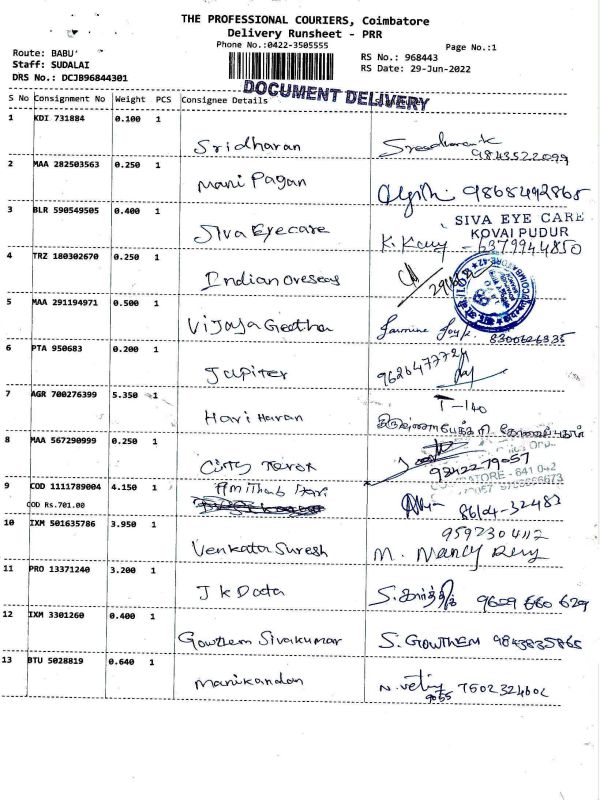 THE PROFESSIONAL COURIERS, Coimbatore
Delivery Runsheet - PRR
Phone No.:0422-3505555
Page No.:1
Route: BABU
Staff: SUDALAI
DRS No.: DCJB96844301
RS No.: 968443
RS Date: 29-Jun-2022
DOCUMENT DELIVERY
S No Consignment No Weight PCS Consignee Details
1 KDI 731884 0.100 1 Sridharan 9843522099
2 MAA 282503563 0.250 1 Mani Pagan 9868492865
3 BLR 590549505 0.400 1 Siva Eyecare
SIVA EYE CARE
KOVAI PUDUR
6379944850
4 TRZ 180302670 0.250 1 Indian Overseas
5 MAA 291194971 0.500 1 Vijaya Geetha Jasmine 8300626335
6 PTA 950683 0.200 1 Jupiter
7 AGR 700276399 5.350 1 Hari Haran T-140
8 MAA 567290999 0.250 1 9342279057
9 COD 1111789004 4.150 1
COD Rs.701.00
86104-32483
10 IXM 501635786 3.950 1 Venkata Suresh 9592304112
M. Nancy
11 PRO 13371240 3.200 1 J K Data 9659 660 629
12 IXM 3301260 0.400 1 Gowthem Sivakumar S. GOWTHEM 9843835865
13 BTU 5028819 0.640 1 Manikandan 7502324602